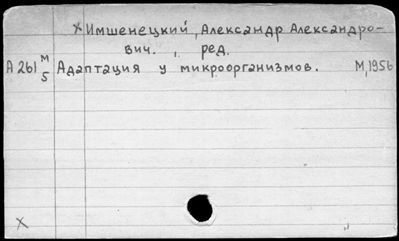 × Имшенецкий, Александр Александро-
вич., ред.
А 261 М/5 Адаптация у микроорганизмов. М, 1956
×